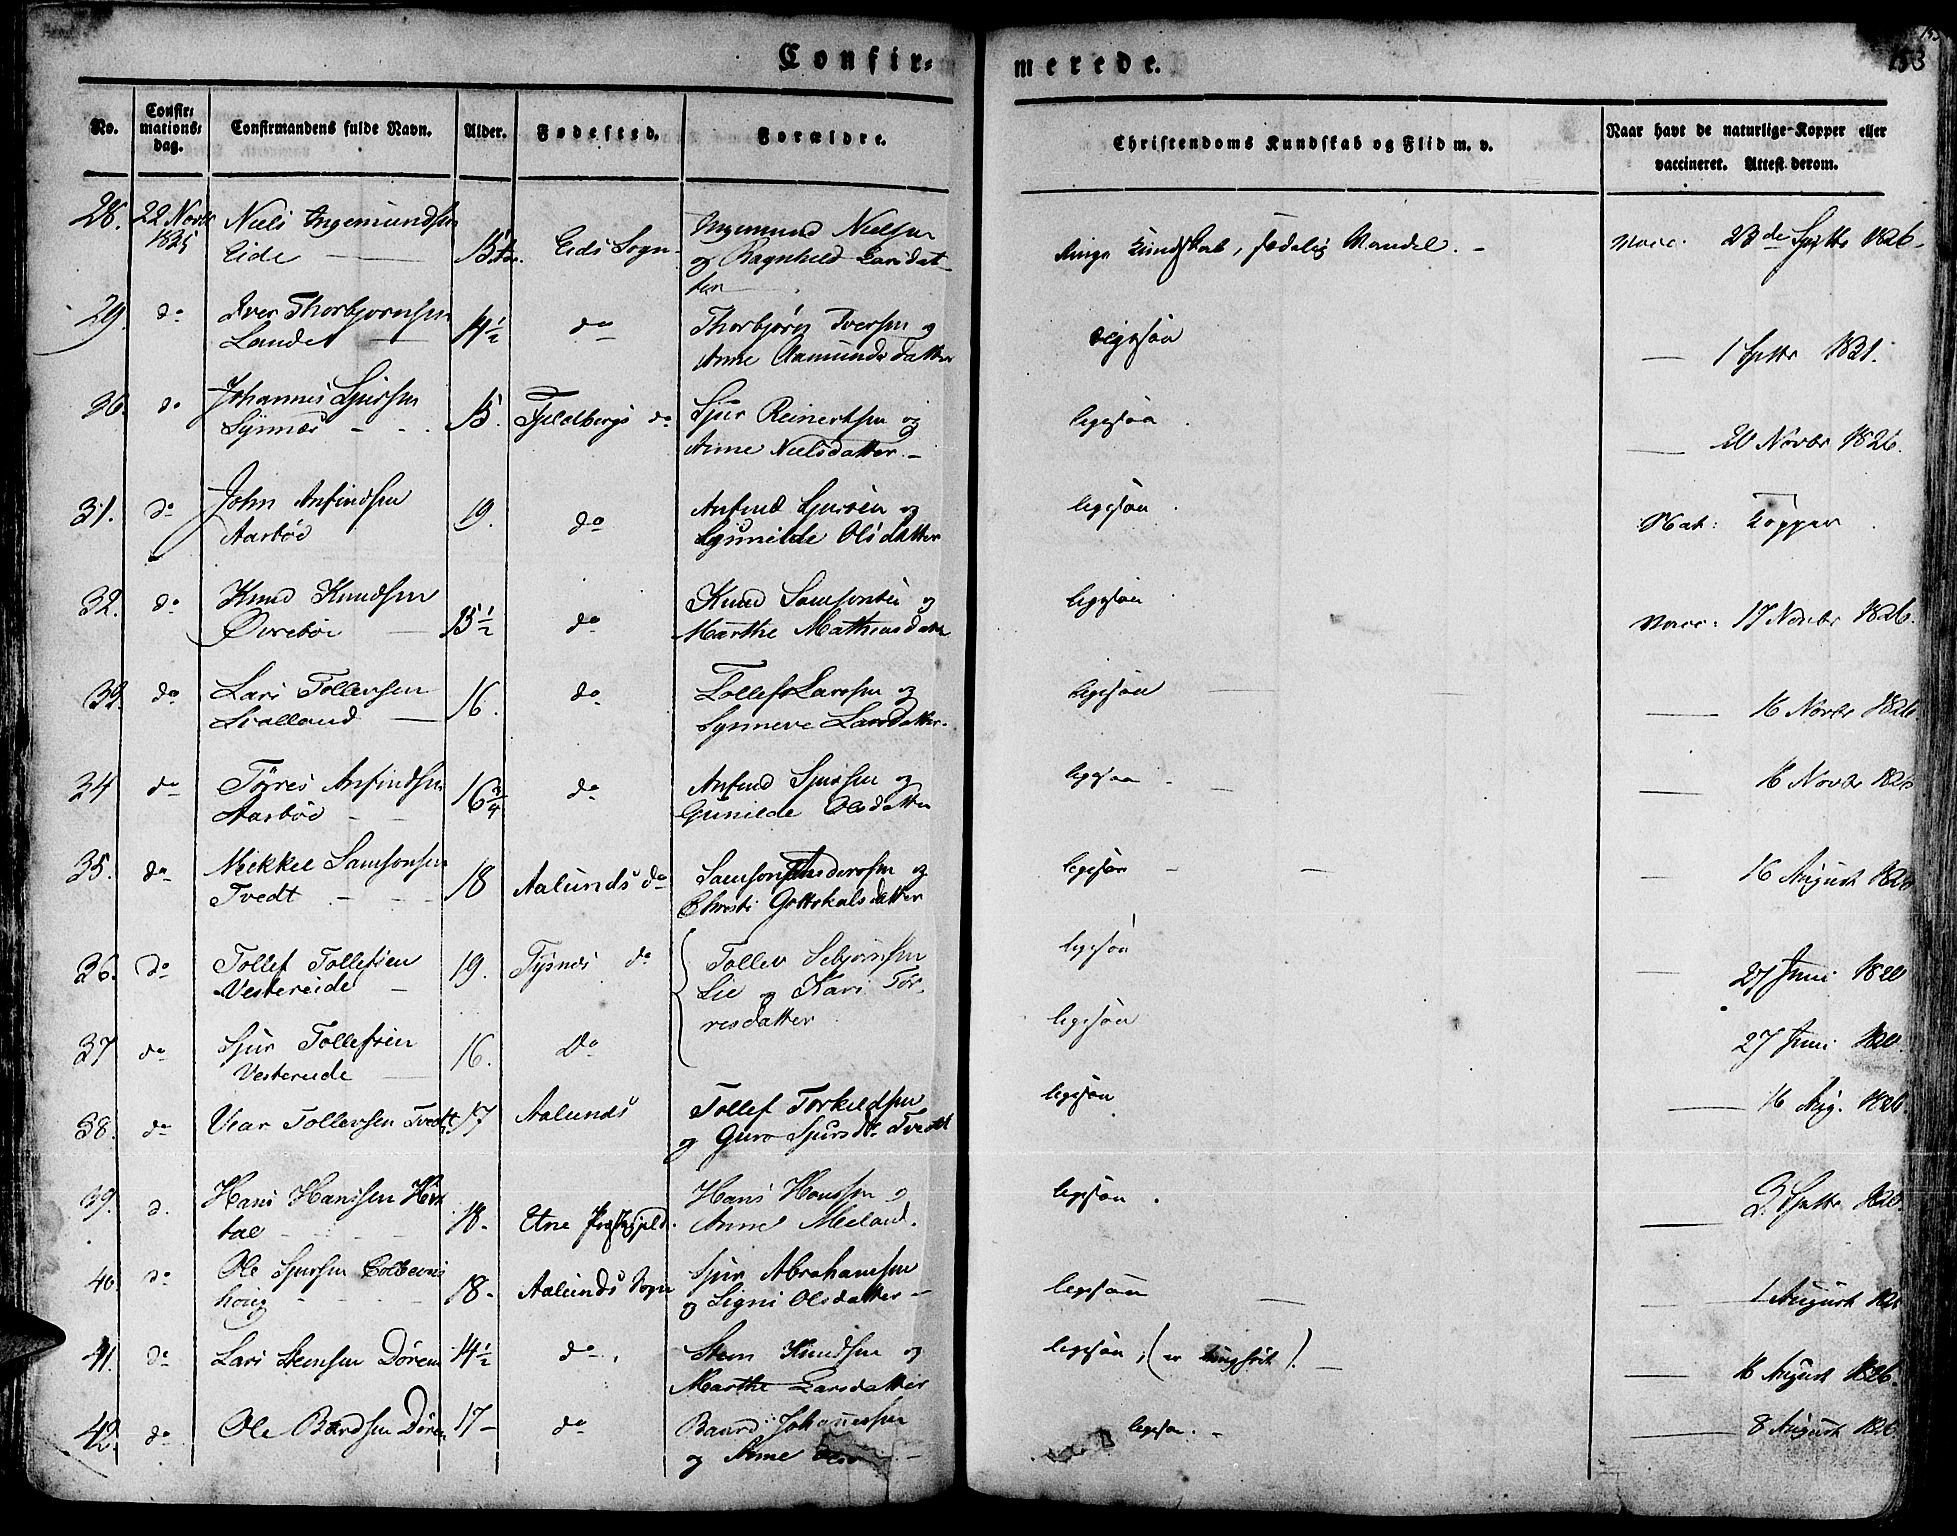 Confir-
merede.
153
No.
Confir-
mations-
dag.
Confirmandens fulde Navn.
Alder.
Fødested.
Forældre.
Christendoms Kundskab og Flid m. v.
Naar havt de naturlige Kopper eller
vaccineret. Attest derom.
28. 22 Novbr 1835 Niels Ingemundsen Eide 15 Eids Sogn Ingemund Nielsen og Ragnhild Larsdatter ringe Kundskab, sædelig Vandel. Vacc: 23de Septbr 1826
29. do Iver Thorbjørnsen Lande 14½ do Thorbjørn Iversen og Anne Aamundsdatter ligesaa — 1 Septbr 1831.
30. do Johannes Sjursen Synnes 15. Fjeldbergs do Sjur Reinertsen og Anne Nielsdatter ligesaa — 20 Novbr 1826.
31. do John Anfindsen Aarbøe 19. do Anfind Sjursen og Gunilde Olsdatter ligesaa Nat: Kopper
32. do Knud Knudsen Øvrebøe 15½ do Knud Samsonsen og Marthe Mathiasdatter ligesaa Vacc: 17 Novbr 1826.
33. do Lars Tollevsen 16. do Tollef Larsen og Synneve Larsdatter ligesaa — 16 Novbr 1826
34 do Tørres Anfindsen Aarbøe 16¾ do Anfind Sjursen og Gunilde Olsdatter ligesaa — 16 Novbr 1826
35. do Mikkel Samsonsen Tvedt 18 Aalunds do Samson Andersen og Christi Gottskalsdatter ligesaa — 16 August 1826
36. do Tollef Tollefsen Vestereide 19. Tysnes do Tollev Sebjørnsen Lie og Kari Tørresdatter ligesaa — 27 Juni 1820
37 do Sjur Tollefsen Vestereide 16. Do ligesaa 27 Juni 1820.
38. do Vear Tollevsen Tvedt 17 Aalunds Tollef Torkeldsen og Guro Sjursdtr Tvedt ligesaa — 16 Aug. 1826.
39. d. Hans Hanssen 18. Etne Hans Hanssen og Anne Meland. ligesaa — 2 Septbr 1820
40. do Ole Sjursen 18 Aalunds Sogn Sjur Abrahamsen og Signi Olsdatter ligesaa — 1 August
41. do Lars Steensen Døren 14½ do Steen Knudsen og Marthe Larsdatter ligesaa, (er — 16 August 1826.
42. do Ole Baardsen Døren 17 do Baard Johannessen og Anne ligesaa. — 8 August 1826